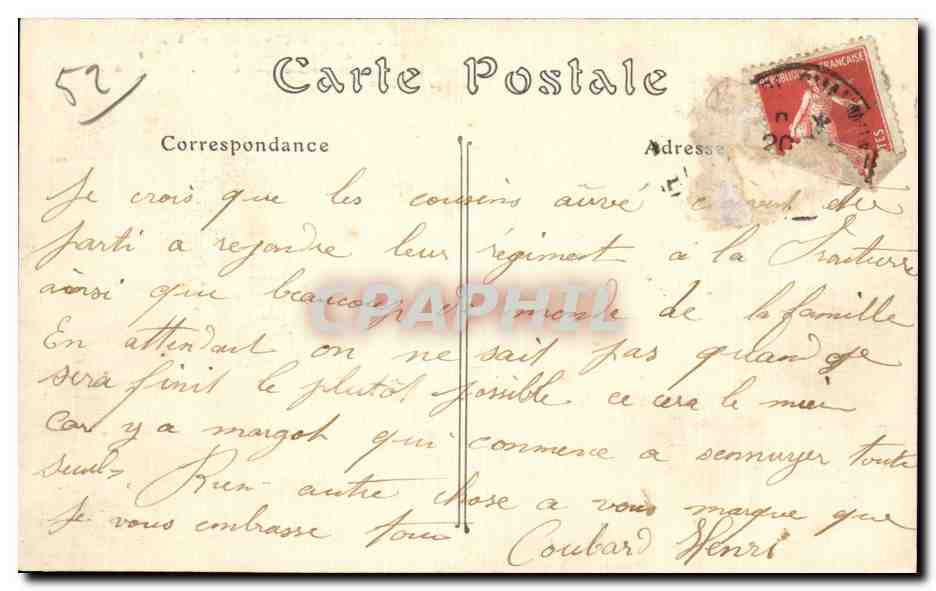 52
Carte Postale
Correspondance
Adresse
REPUBLIQUE FRANÇAISE
Je crois que les cousins auvé doivent etre
parti a rejondre leur régiment a la Frontierre
ainsi que beaucoup de monde de la famille
En attendant on ne sait pas quand ça
sera finit le plutôt possible ce cera le mieu
car y a margot qui commence a sennuyer toute
seule. Rien autre chose a vous marque que
Je vous embrasse tous
Coubard Henri
CPAPHIL